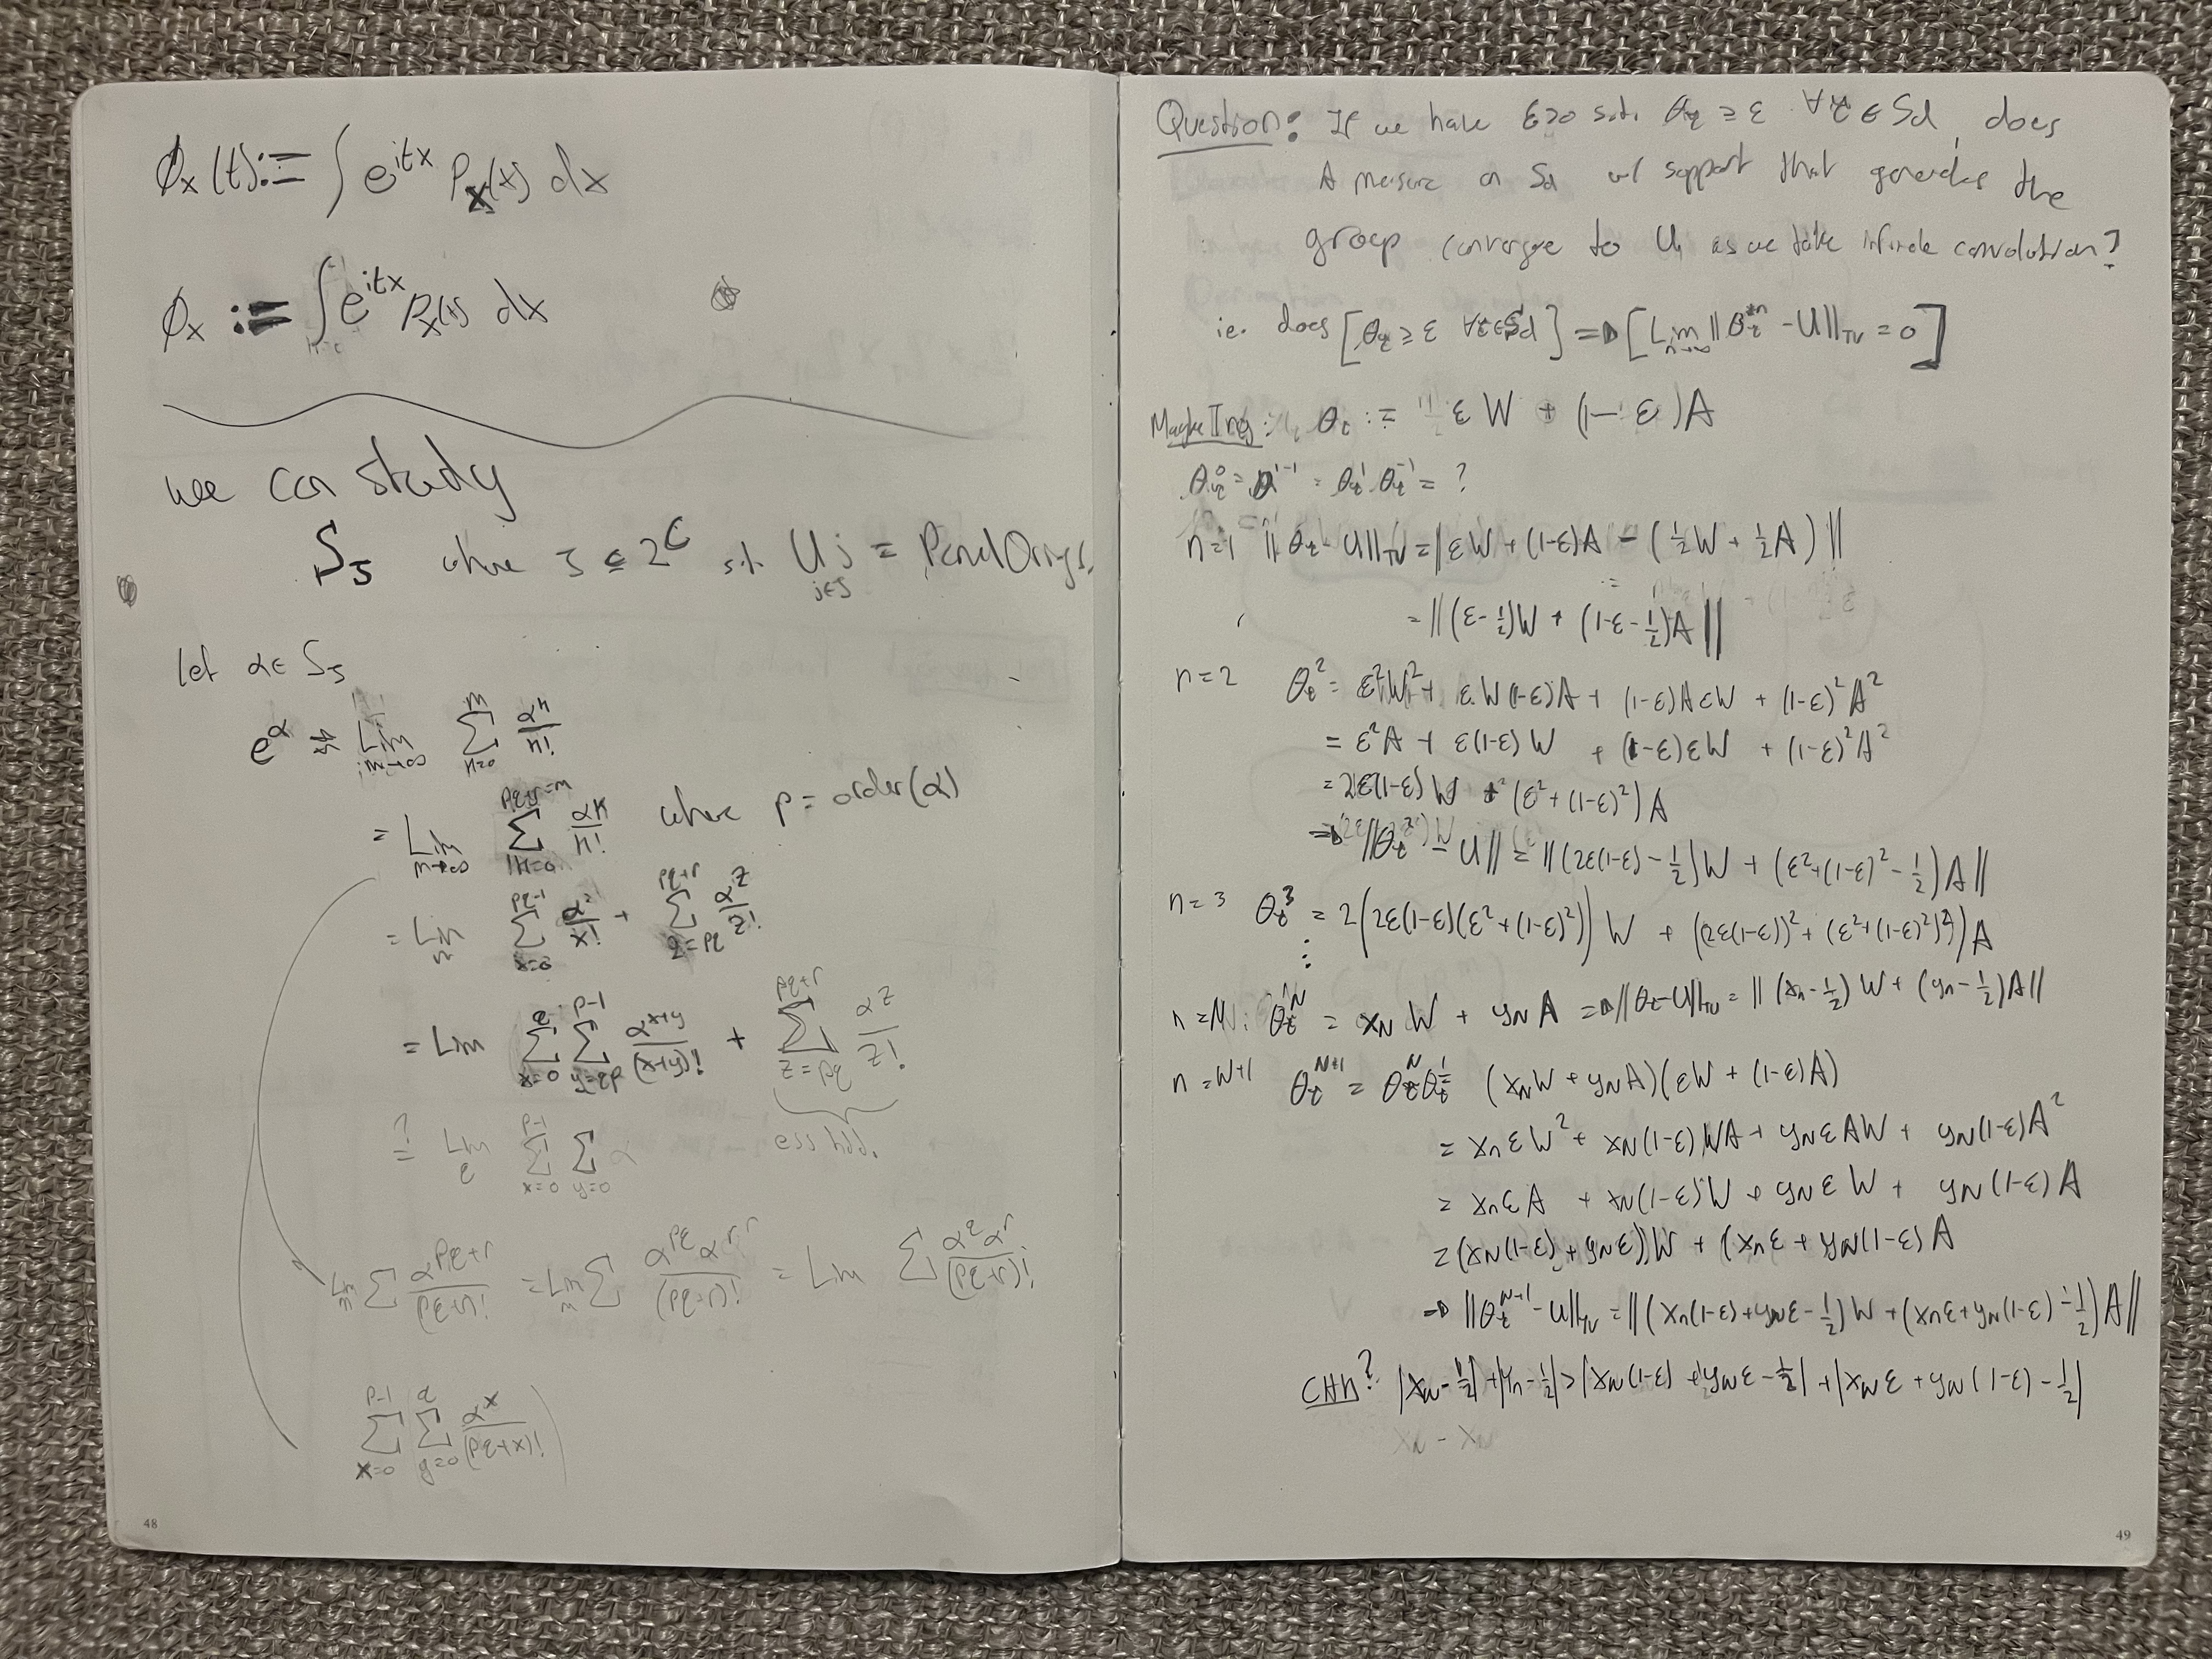 48
φ_x(t) := ∫ e^{itx} P_x(x) dx
φ_x := ∫ e^{itx} P(x) dx
we can study
ζ_S where S ∈ 2^C s.t. ∪_{j∈S} j =
let α ∈ ζ_S
e^α = Lim_{m→∞} Σ_{n=0}^{m} α^n/n!
= Lim_{m→∞} Σ_{n=0} α^n/n! where p = order(α)
= Lim_m Σ_{x=0}^{pq-1} α^x/x! + Σ_{z=pq}^{pq+r} α^z/z!
= Lim Σ_{x=0} Σ^{p-1} α^{x+y}/(x+y)! + Σ_{z=pq}^{pq+r} α^z/z!
?= Lim Σ_{x=0}^{p-1} Σ_{y=0}
Lim_m Σ α^{pq+r}/(pq+r)! = Lim_m Σ α^{pq} α^r/(pq+r)! = Lim Σ α^q α^r/(pq+r)!
Σ_{x=0}^{p-1} Σ_{y=0}^{q} α^x/(pq+x)!
49
Question: If we have ε>0 s.t. θ_τ ≥ ε ∀τ∈Sd, does
A measure on Sd w/ support that generates the
group converge to U as we take infinite convolution?
i.e. does [θ_τ ≥ ε ∀τ∈Sd] ⇒ [Lim_{n→∞} ||θ_τ^{*n} - U||_TV = 0]
θ_τ := εW + (1-ε)A
n=1 ||θ_τ - U||_TV = ||εW + (1-ε)A - (½W + ½A)||
= ||(ε-½)W + (1-ε-½)A||
n=2 θ_τ^2 = ε²W² + εW(1-ε)A + (1-ε)AεW + (1-ε)²A²
= ε²A + ε(1-ε)W + (1-ε)εW + (1-ε)²A²
= 2ε(1-ε)W + (ε²+(1-ε)²)A
⇒ ||θ_τ - U|| = ||(2ε(1-ε)-½)W + (ε²+(1-ε)²-½)A||
n=3 θ_τ^3 = 2(2ε(1-ε)(ε²+(1-ε)²))W + ((2ε(1-ε))²+(ε²+(1-ε)²)²)A
⋮
n=N: θ_τ^N = x_N W + y_N A ⇒ ||θ_τ-U||_TV = ||(x_n-½)W + (y_n-½)A||
n=N+1 θ_τ^{N+1} = θ_τ^N θ_τ^1 = (x_N W + y_N A)(εW + (1-ε)A)
= x_N εW² + x_N(1-ε)WA + y_N εAW + y_N(1-ε)A²
= x_N εA + x_N(1-ε)W + y_N εW + y_N(1-ε)A
= (x_N(1-ε) + y_N ε)W + (x_N ε + y_N(1-ε))A
⇒ ||θ_τ^{N+1} - U||_TV = ||(x_N(1-ε)+y_N ε-½)W + (x_N ε+y_N(1-ε)-½)A||
|x_N-½|+|y_n-½| > |x_N(1-ε)+y_N ε-½| + |x_N ε+y_N(1-ε)-½|
x_N - x_N